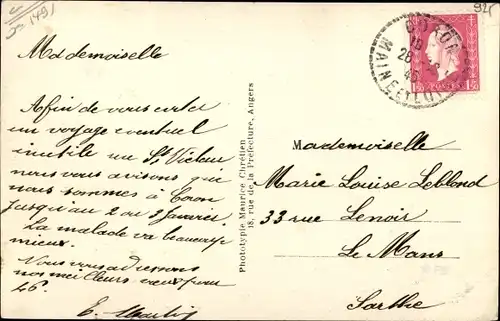 921
Mademoiselle
Afin de vous eviter
un voyage eventuel
inutile au St Victeur
nous vous avisons que
nous sommes à Coron
jusqu'au 2 ou 3 Janvier.
La malade va beaucoup
mieux.
Vous vous adressons
nos meilleurs vœux pour
46.
E. Martin
Phototypie Maurice Chrétien
18, rue de la Préfecture, Angers
CORON
28
45
MAINE ET LOIRE
1F50
POSTES
1F50
Mademoiselle
Marie Louise Leblond
33 rue Lenoir
Le Mans
Sarthe